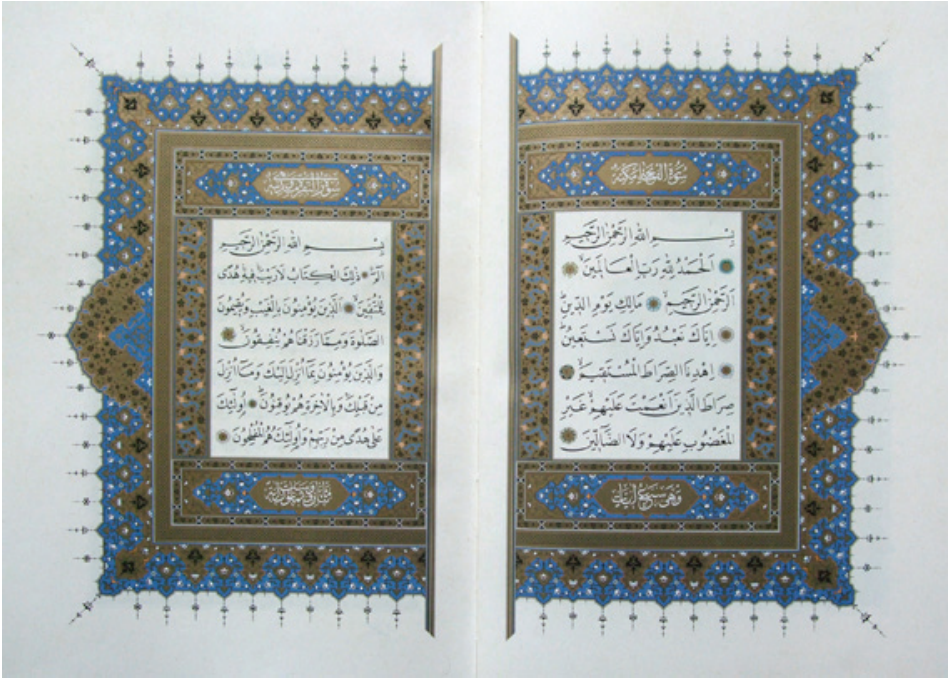 سُورَةُ الْفَاتِحَةِ مَكِّيَّةٌ
بِسْمِ اللهِ الرَّحْمٰنِ الرَّحِيمِ
اَلْحَمْدُ لِلّٰهِ رَبِّ الْعَالَمِينَۙ
اَلرَّحْمٰنِ الرَّحِيمِۙ مَالِكِ يَوْمِ الدِّينِۜ
اِيَّاكَ نَعْبُدُ وَاِيَّاكَ نَسْتَعِينُۜ
اِهْدِنَا الصِّرَاطَ الْمُسْتَقِيمَۙ
صِرَاطَ الَّذِينَ اَنْعَمْتَ عَلَيْهِمْۙ غَيْرِ
الْمَغْضُوبِ عَلَيْهِمْ وَلَا الضَّٓالِّينَ
وَهِيَ سَبْعُ اٰيَاتٍ
سُورَةُ الْبَقَرَةِ
بِسْمِ اللهِ الرَّحْمٰنِ الرَّحِيمِ
الٓمٓۜ ذٰلِكَ الْكِتَابُ لَا رَيْبَۚ فِيهِۚ هُدًى
لِلْمُتَّقِينَۙ اَلَّذِينَ يُؤْمِنُونَ بِالْغَيْبِ وَيُقِيمُونَ
الصَّلٰوةَ وَمِمَّا رَزَقْنَاهُمْ يُنْفِقُونَۙ
وَالَّذِينَ يُؤْمِنُونَ بِمَٓا اُنْزِلَ اِلَيْكَ وَمَٓا اُنْزِلَ
مِنْ قَبْلِكَۚ وَبِالْاٰخِرَةِ هُمْ يُوقِنُونَۜ اُو۬لٰٓئِكَ
عَلٰى هُدًى مِنْ رَبِّهِمْ وَاُو۬لٰٓئِكَ هُمُ الْمُفْلِحُونَ